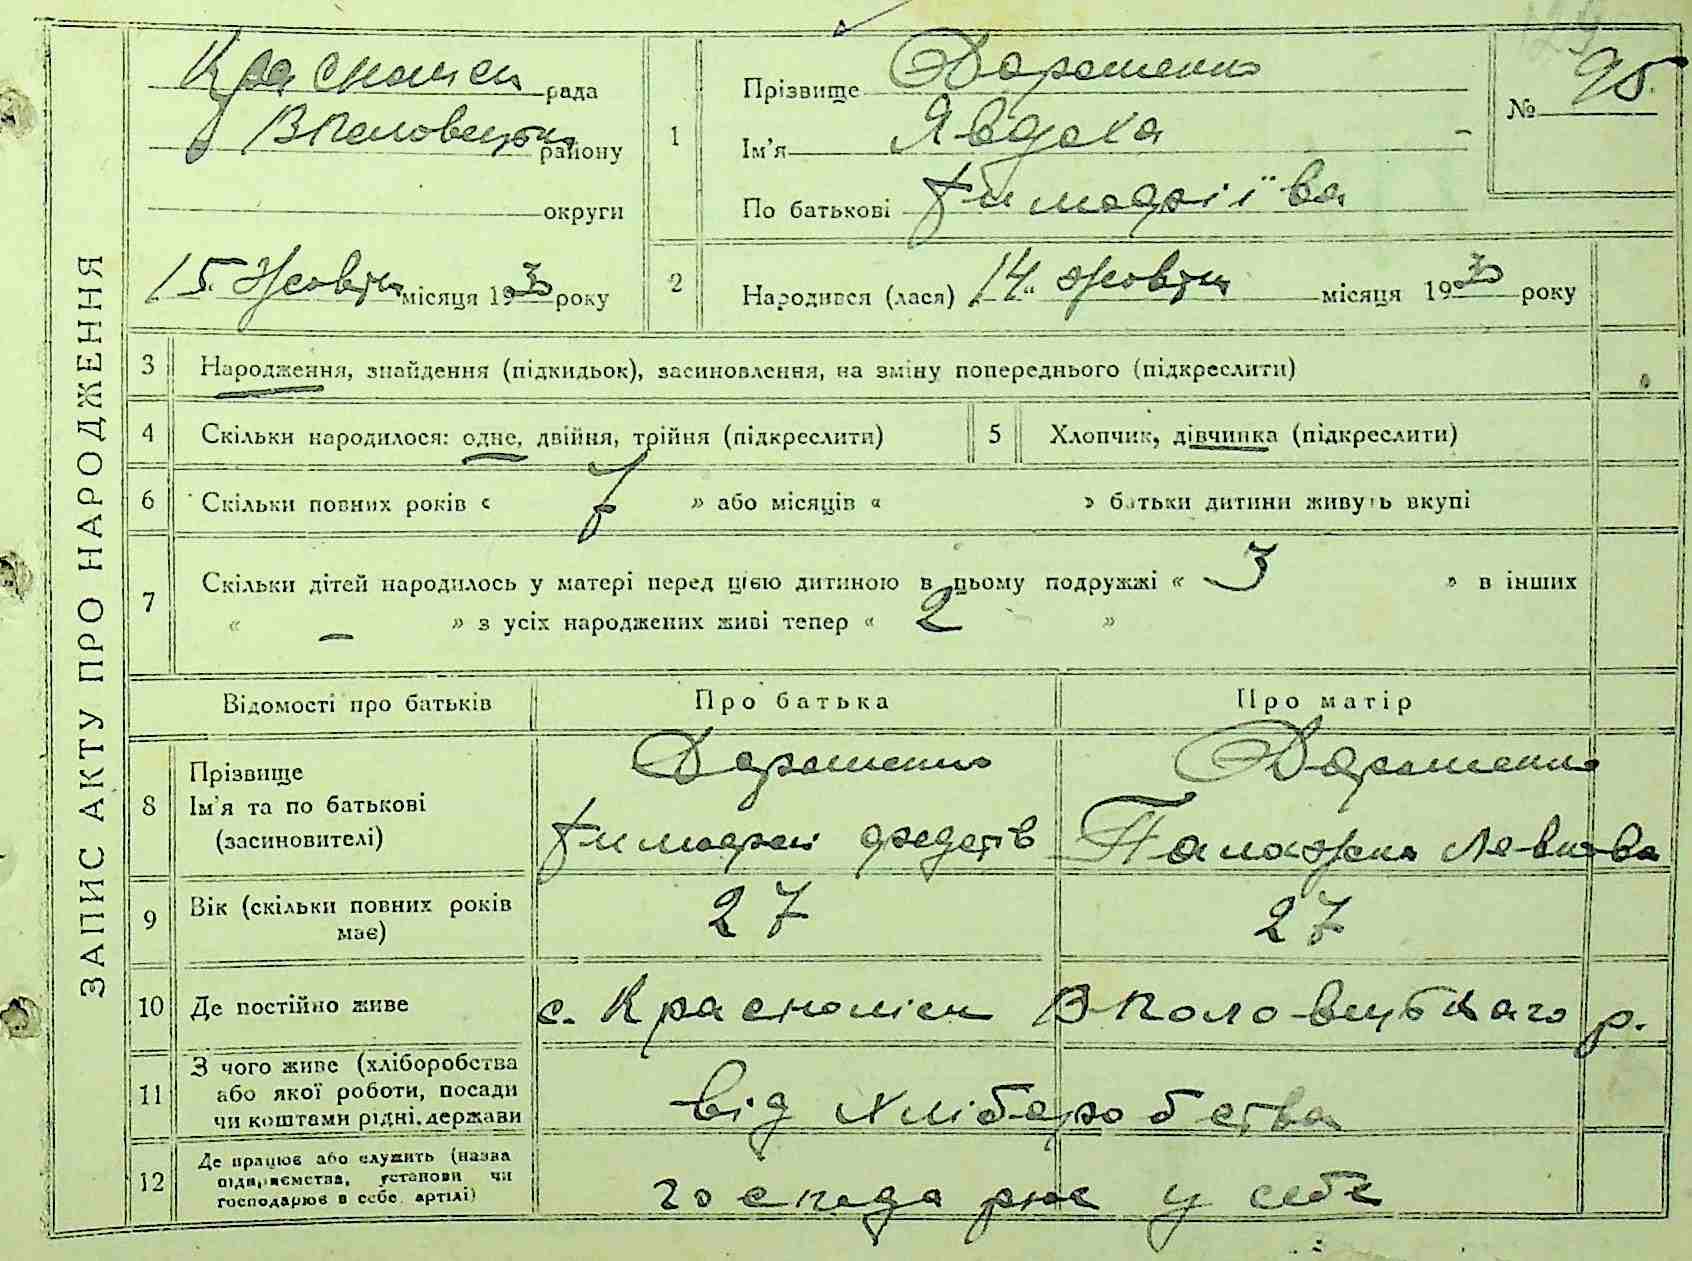 ЗАПИС АКТУ ПРО НАРОДЖЕННЯ
Краснолієн рада
В Половецьк району
округи
15 Жовтн місяця 1930 року
1
Прізвище Дорошенко
Ім'я Явдоха
По батькові Тимофіїва
№ 95
2 Народився (лася) 14 жовтн місяця 1930 року
3 Народження, знайдення (підкидьок), засиновлення, на зміну попереднього (підкреслити)
4 Скільки народилося: одне, двійня, трійня (підкреслити) 5 Хлопчик, дівчинка (підкреслити)
6 Скільки повних років « 7 » або місяців « » батьки дитини живуть вкупі
7 Скільки дітей народилось у матері перед цією дитиною в цьому подружжі « 3 » в інших
« – » з усіх народжених живі тепер « 2 »
Відомості про батьків Про батька Про матір
8 Прізвище Дорошенко Дорошенко
Ім'я та по батькові Тимофей Левкова
(засиновителі)
9 Вік (скільки повних років має) 27 27
10 Де постійно живе с. Краснолієн В-Половецького р.
11 З чого живе (хліборобства
або якої роботи, посади від хліборобства
чи коштами рідні, держави
12 Де працює або служить (назва
підприємства, установи чи господарює у себе
господарює в себе, артілі)